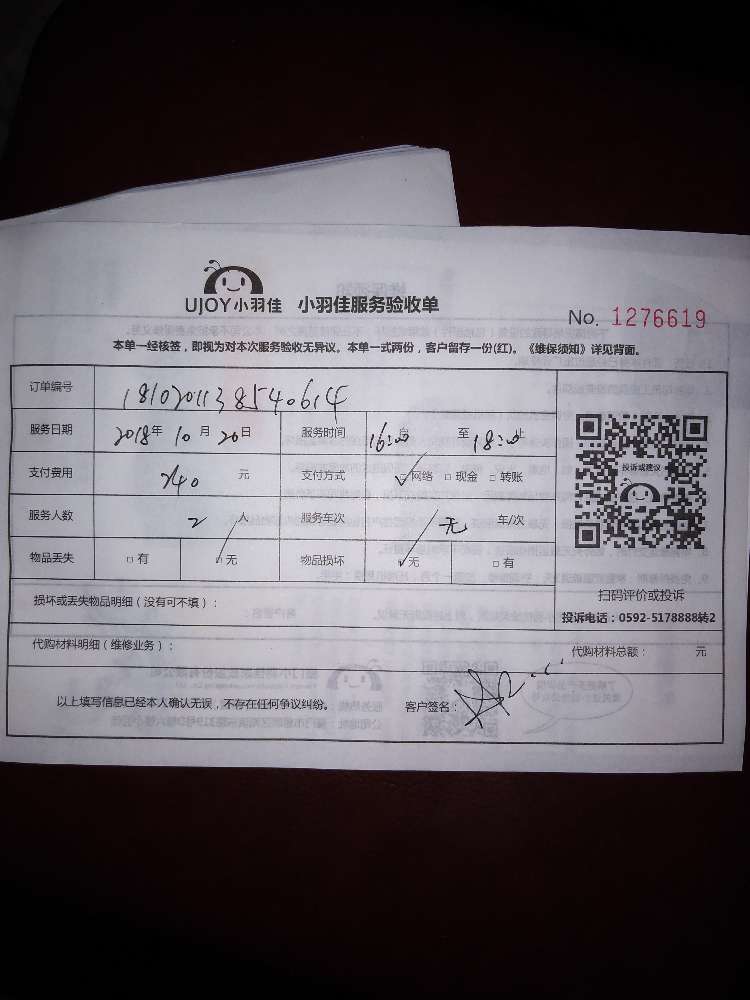 UJOY小羽佳 小羽佳服务验收单
No. 1276619
本单一经核签，即视为对本次服务验收无异议。本单一式两份，客户留存一份(红)。《维保须知》详见背面。
订单编号 1810201138540614
服务日期 2018年 10月 20日 服务时间 16:00 自 至 18:00 止
支付费用 240 元 支付方式 ✓网络 □ 现金 □ 转账
服务人数 2 人 服务车次 无 车/次
物品丢失 □ 有 ✓无 物品损坏 ✓无 □ 有
投诉或建议
扫码评价或投诉
投诉电话：0592-5178888转2
损坏或丢失物品明细（没有可不填）：
代购材料明细（维修业务）： 代购材料总额： 元
以上填写信息已经本人确认无误，不存在任何争议纠纷。 客户签名：